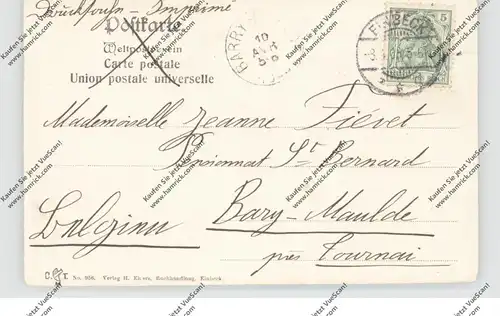 Drucksache - Imprimé
Postkarte
Weltpostverein
Carte postale
Union postale universelle
BARRY
10
5
Mademoiselle Jeanne Fiévet
Pensionnat St Bernard
Bary-Maulde
près Tournai
Belgien
No. 956. Verlag H. Buchhandlung, Einbeck
Kaufen Sie jetzt VueScan!
www.hamrick.com